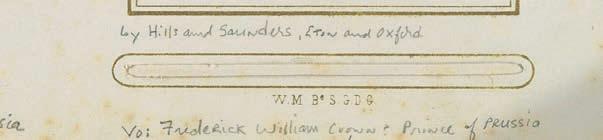 by Hills and Saunders, Eton and Oxford
W.M Bᵗᵉ S.G.D.G
sia
Vo: Frederick William Crown Prince of Prussia